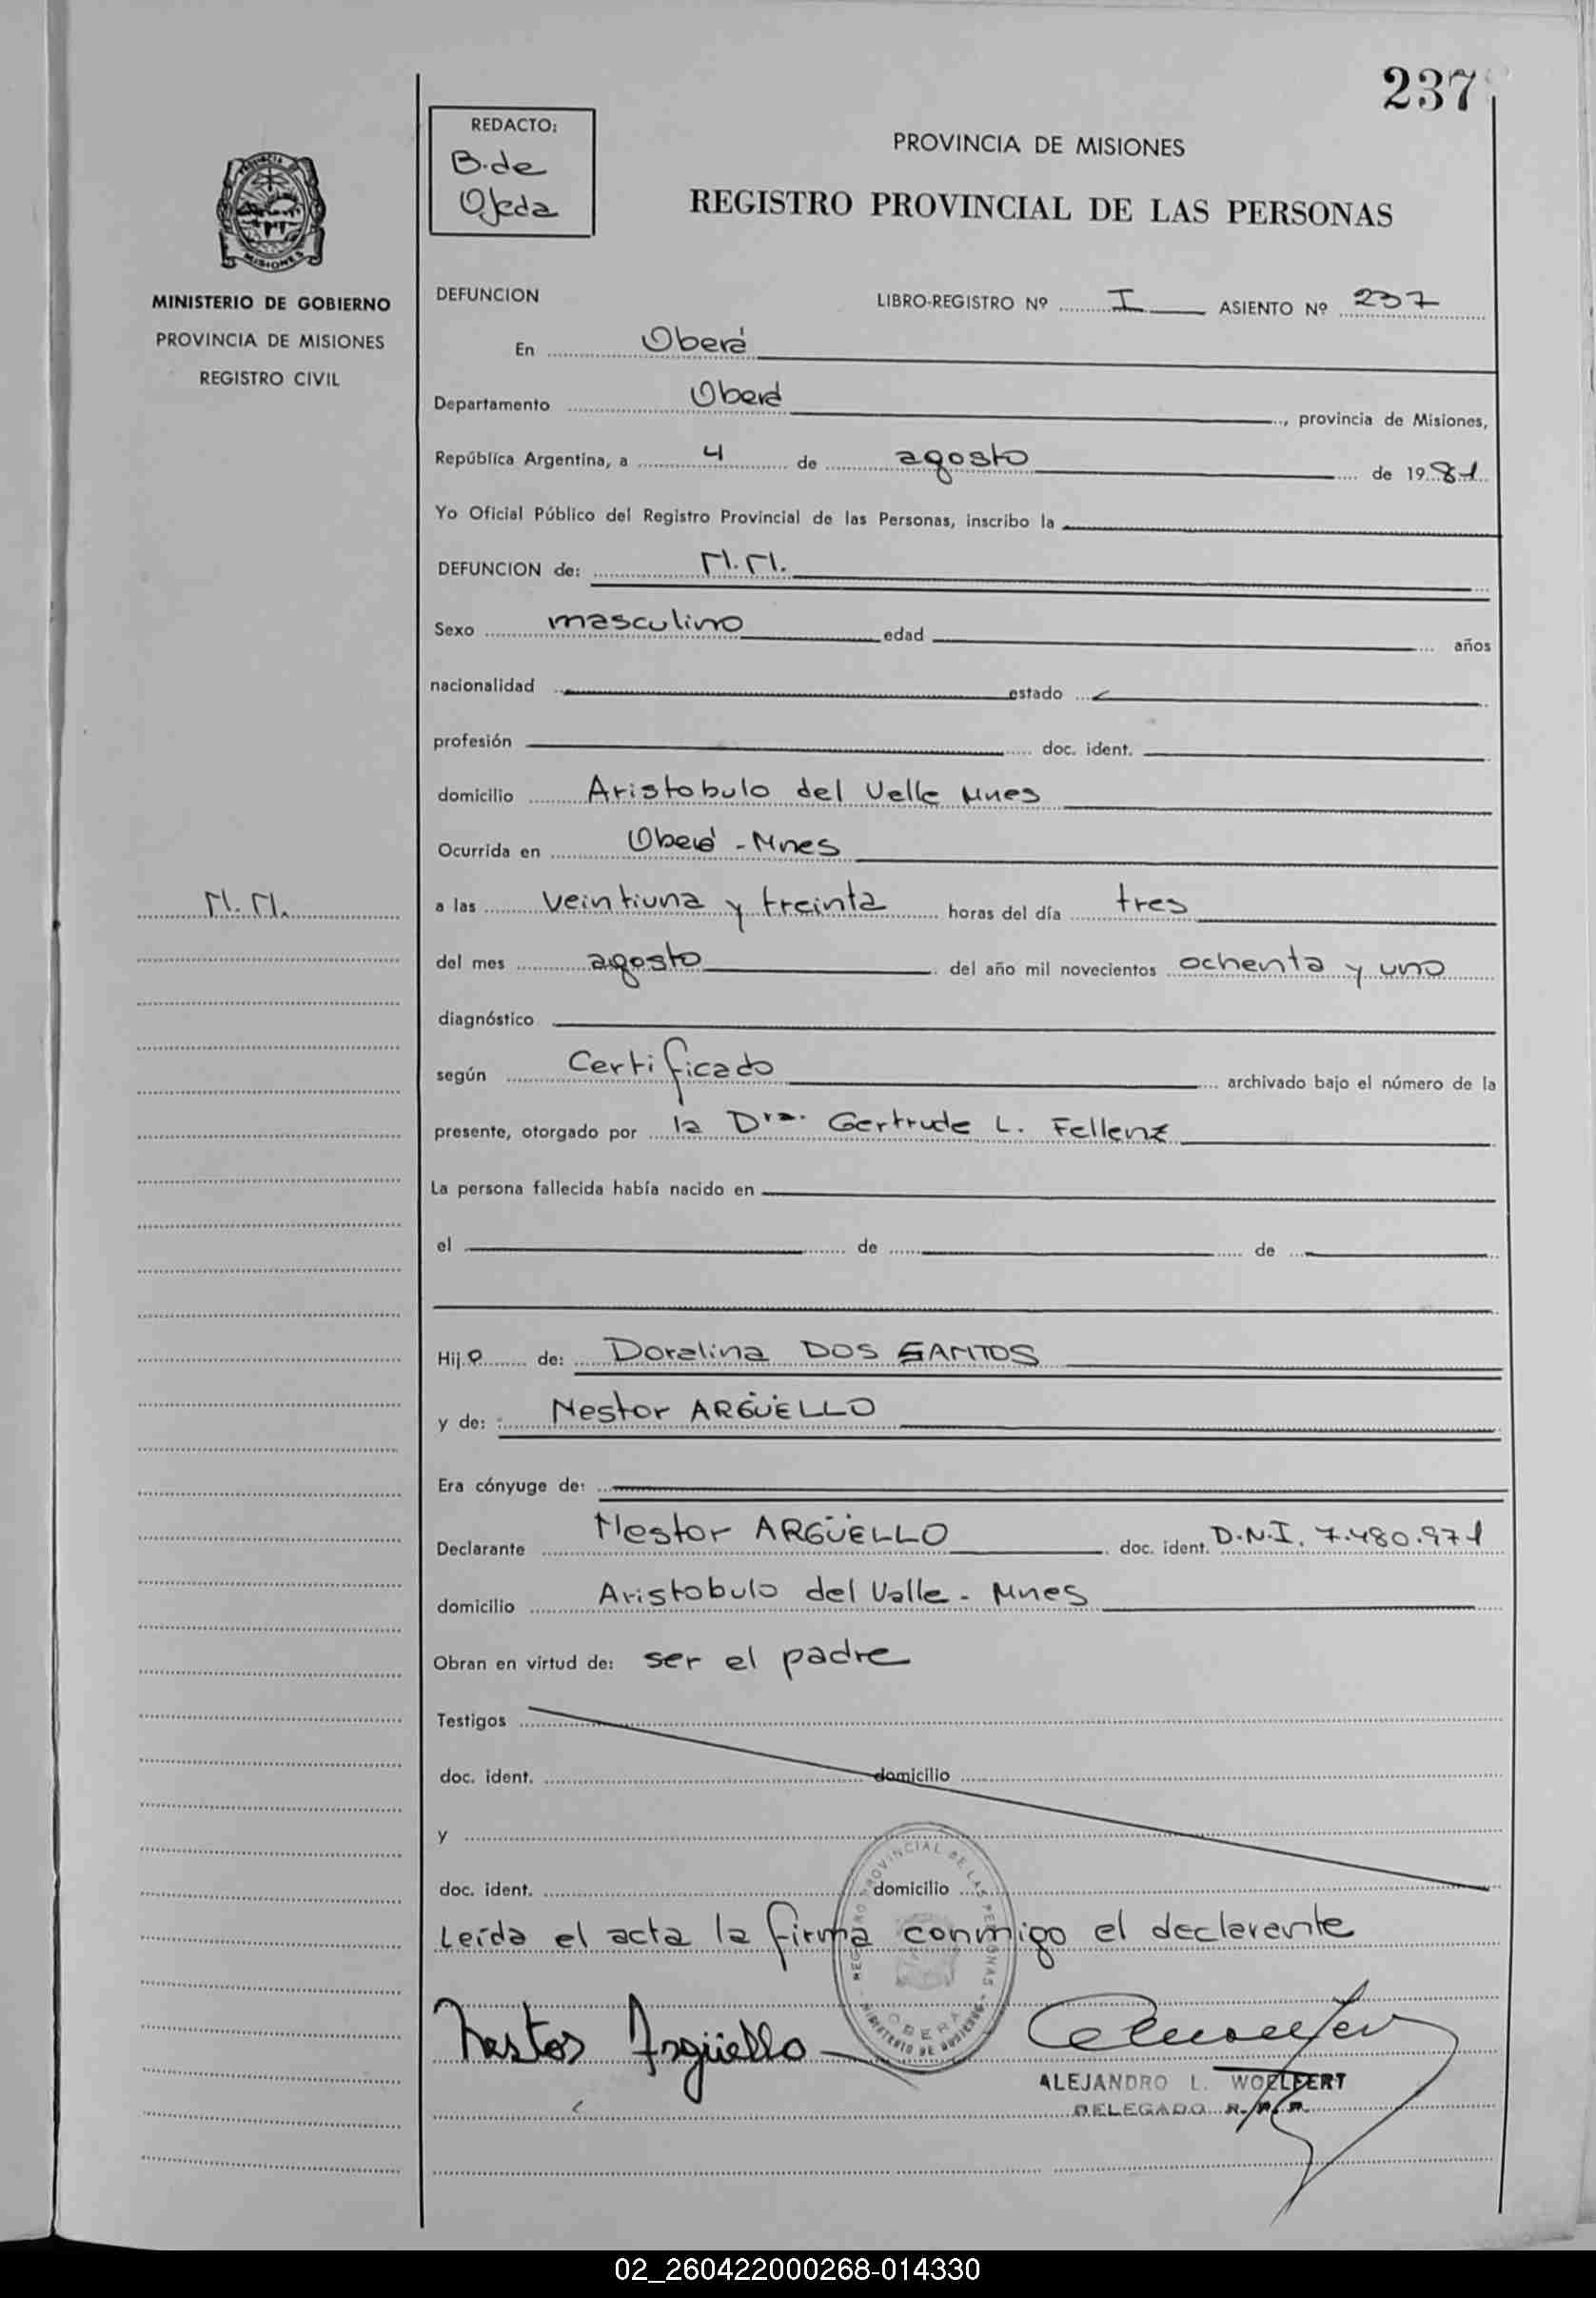 237
REDACTO:
B. de
Ojeda
PROVINCIA DE MISIONES
REGISTRO PROVINCIAL DE LAS PERSONAS
MISIONES
MINISTERIO DE GOBIERNO
PROVINCIA DE MISIONES
REGISTRO CIVIL
DEFUNCION LIBRO-REGISTRO Nº I ASIENTO Nº 237
En Oberá
Departamento Oberá, provincia de Misiones,
República Argentina, a 4 de agosto de 1981
Yo Oficial Público del Registro Provincial de las Personas, inscribo la
DEFUNCION de: N.N.
Sexo masculino edad años
nacionalidad estado
profesión doc. ident.
domicilio Aristobulo del Valle Mnes
Ocurrida en Oberá - Mnes
N.N.
a las veintiuna y treinta horas del día tres
del mes agosto del año mil novecientos ochenta y uno
diagnóstico
según Certificado archivado bajo el número de la
presente, otorgado por la Dra. Gertrude L. Fellenz
La persona fallecida había nacido en
el de de
Hijo de: Doralina DOS SANTOS
y de: Nestor ARGÜELLO
Era cónyuge de:
Declarante Nestor ARGÜELLO doc. ident. D.N.I. 7.480.971
domicilio Aristobulo del Valle - Mnes
Obran en virtud de: ser el padre
Testigos
doc. ident. domicilio
y
doc. ident. domicilio
Leída el acta la firma conmigo el declarante
REGISTRO PROVINCIAL DE LAS PERSONAS
OBERA
MINISTERIO DE GOBIERNO
Nestor Argüello
ALEJANDRO L. WOELFERT
DELEGADO R. P. P.
02_260422000268-014330